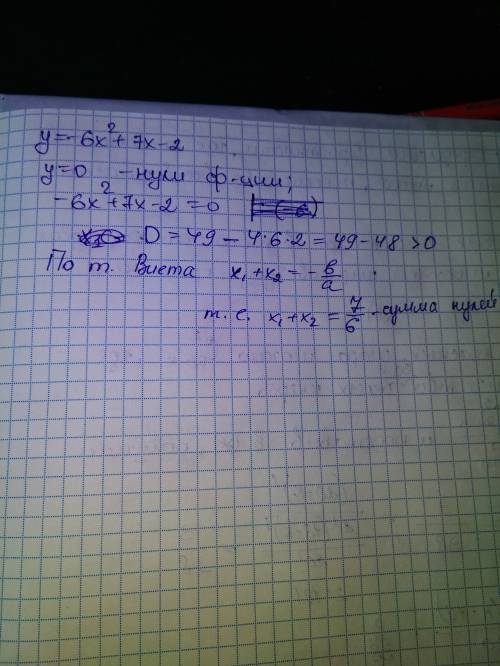 y=-6x²+7x-2
y=0 -нули ф-ции;
-6x²+7x-2=0
D=49-4·6·2=49-48>0
По т. Виета x₁+x₂=-в/a
т.е. x₁+x₂=7/6-сумма нулей